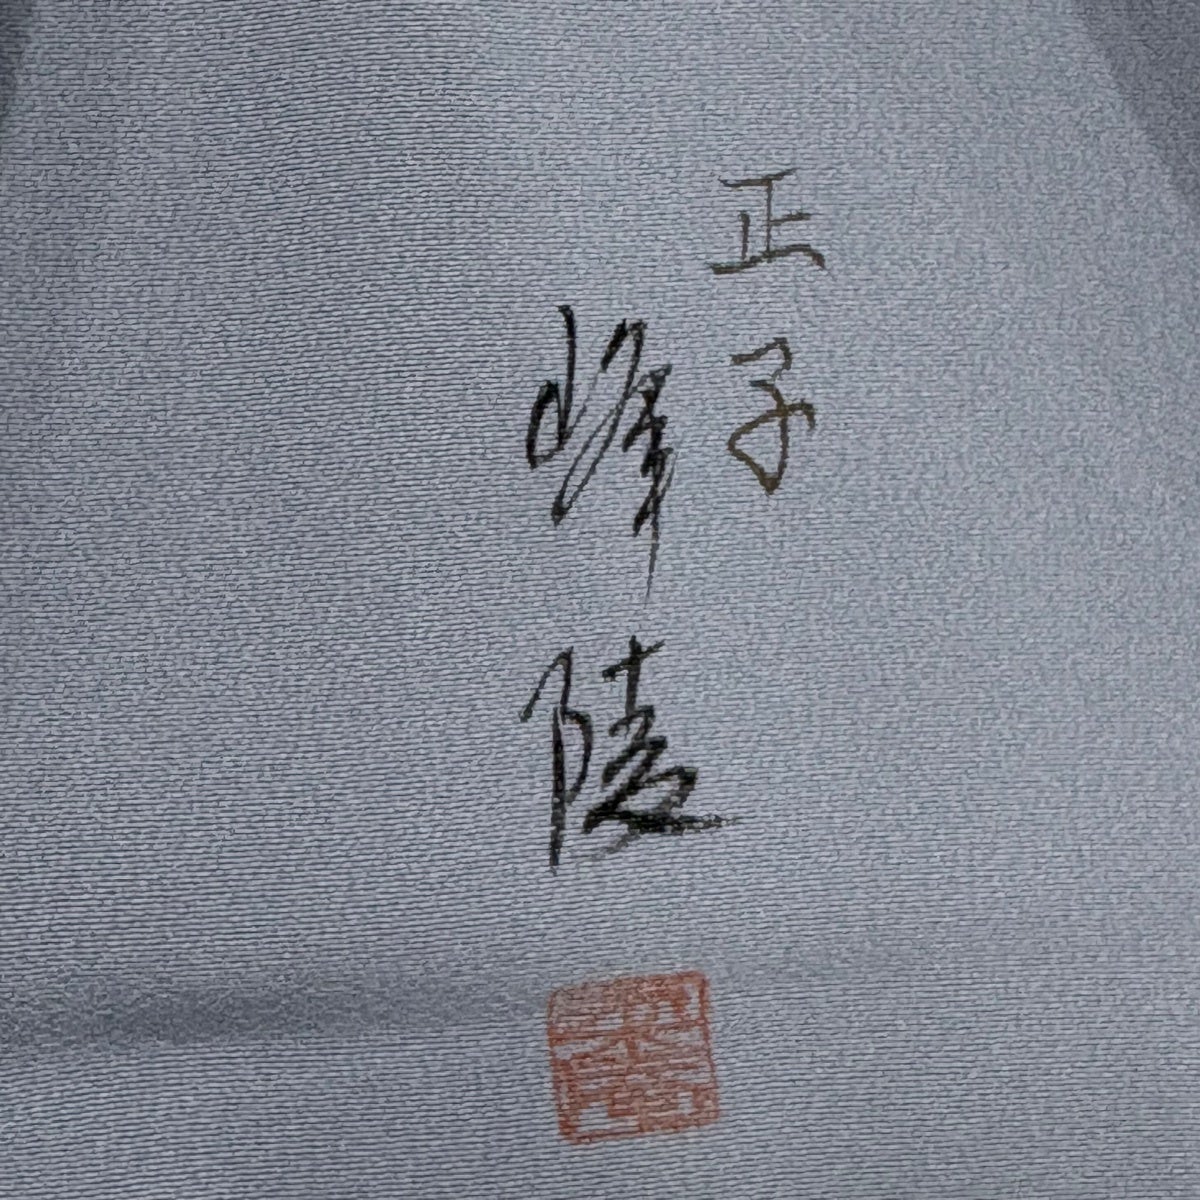 正子
峰陵